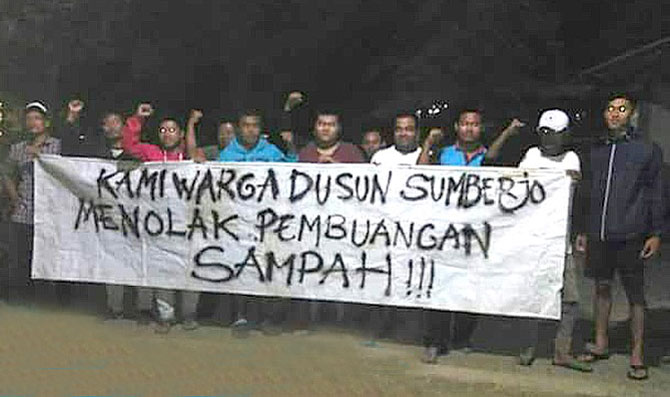 KAMI WARGA DUSUN SUMBERJO
MENOLAK PEMBUANGAN
SAMPAH!!!